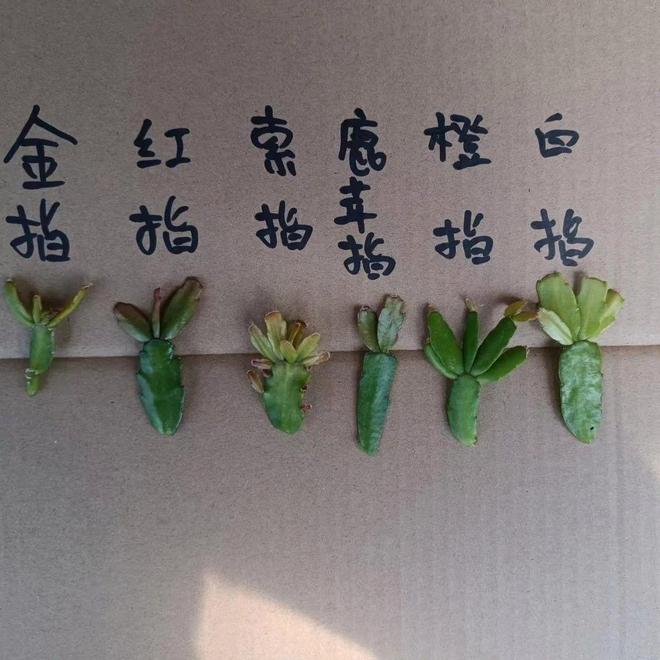 金指
红指
索指
鹿苹指
橙指
白指